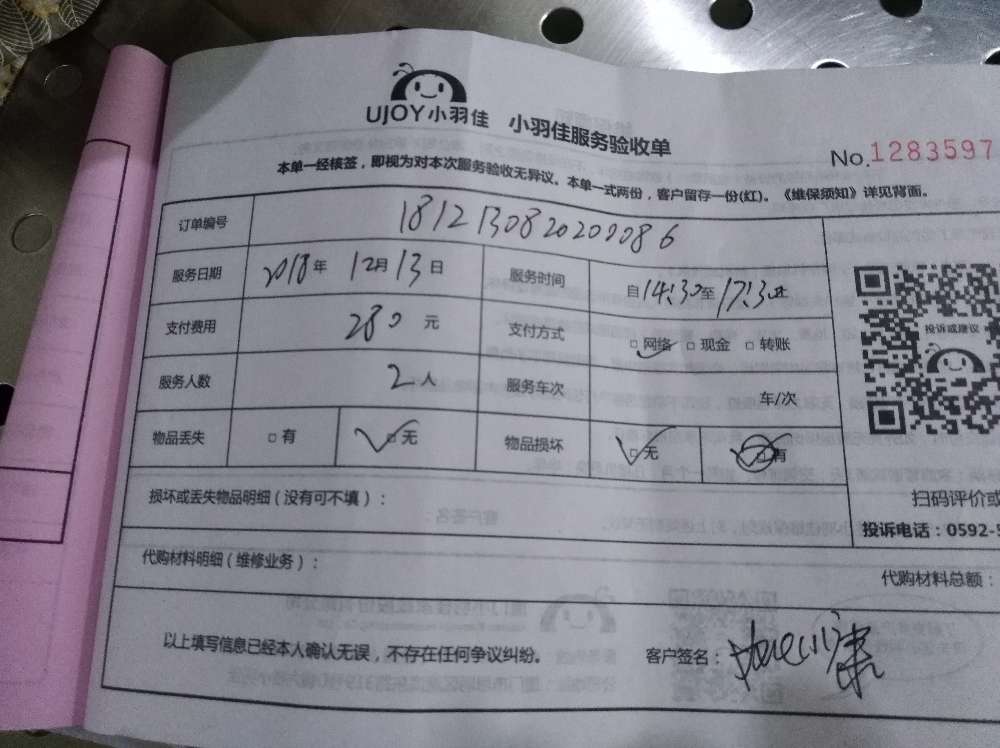 UJOY小羽佳 小羽佳服务验收单
No.1283597
本单一经核签，即视为对本次服务验收无异议。本单一式两份，客户留存一份(红)。《维保须知》详见背面。
订单编号 1812130820200086
服务日期 2018年 12月13日 服务时间 自14:30至17:30止
支付费用 280 元 支付方式 □网络 □现金 □转账
服务人数 2人 服务车次 车/次
物品丢失 □有 □无 物品损坏 □无 □有
投诉或建议
损坏或丢失物品明细（没有可不填）：
扫码评价或
投诉电话：0592-
代购材料明细（维修业务）：
代购材料总额：
以上填写信息已经本人确认无误，不存在任何争议纠纷。 客户签名：